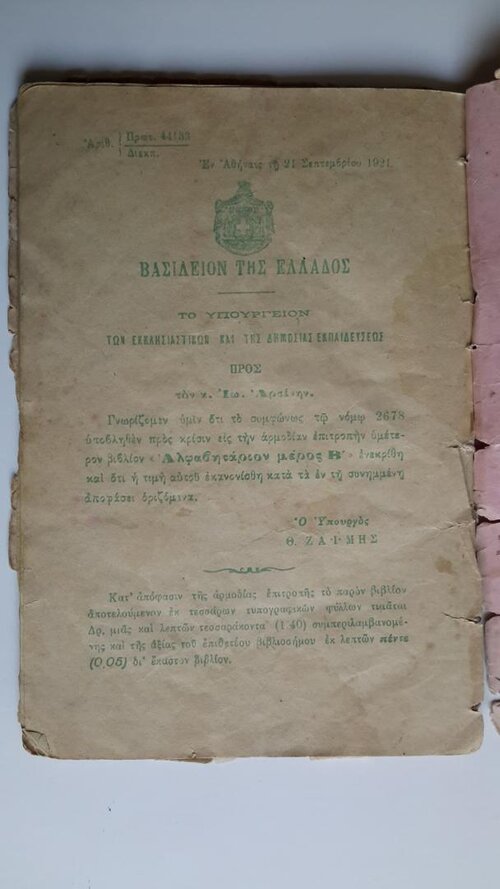 Ἀριθ. Πρωτ. 44133
Διεκπ.
Ἐν Ἀθήναις τῇ 21 Σεπτεμβρίου 1921.
ΒΑΣΙΛΕΙΟΝ ΤΗΣ ΕΛΛΑΔΟΣ
ΤΟ ΥΠΟΥΡΓΕΙΟΝ
ΤΩΝ ΕΚΚΛΗΣΙΑΣΤΙΚΩΝ ΚΑΙ ΤΗΣ ΔΗΜΟΣΙΑΣ ΕΚΠΑΙΔΕΥΣΕΩΣ
ΠΡΟΣ
τὸν κ. Ἰω. Ἀρσένην.
Γνωρίζομεν ὑμῖν ὅτι τὸ συμφώνως τῷ νόμῳ 2678
ὑποβληθὲν πρὸς κρίσιν εἰς τὴν ἁρμοδίαν ἐπιτροπὴν ὑμέτε-
ρον βιβλίον «Ἀλφαβητάριον μέρος Β΄» ἐνεκρίθη
καὶ ὅτι ἡ τιμὴ αὐτοῦ ἐκανονίσθη κατὰ τὰ ἐν τῇ συνημμένῃ
ἀποφάσει ὁριζόμενα.
Ὁ Ὑπουργὸς
Θ. ΖΑΪΜΗΣ
Κατ' ἀπόφασιν τῆς ἁρμοδίας ἐπιτροπῆς τὸ παρὸν βιβλίον
ἀποτελούμενον ἐκ τεσσάρων τυπογραφικῶν φύλλων τιμᾶται
Δρ. μιᾶς καὶ λεπτῶν τεσσαράκοντα (1.40) συμπεριλαμβανομέ-
νης καὶ τῆς ἀξίας τοῦ ἐπιθετέου βιβλιοσήμου ἐκ λεπτῶν πέντε
(0,05) δι' ἕκαστον βιβλίον.